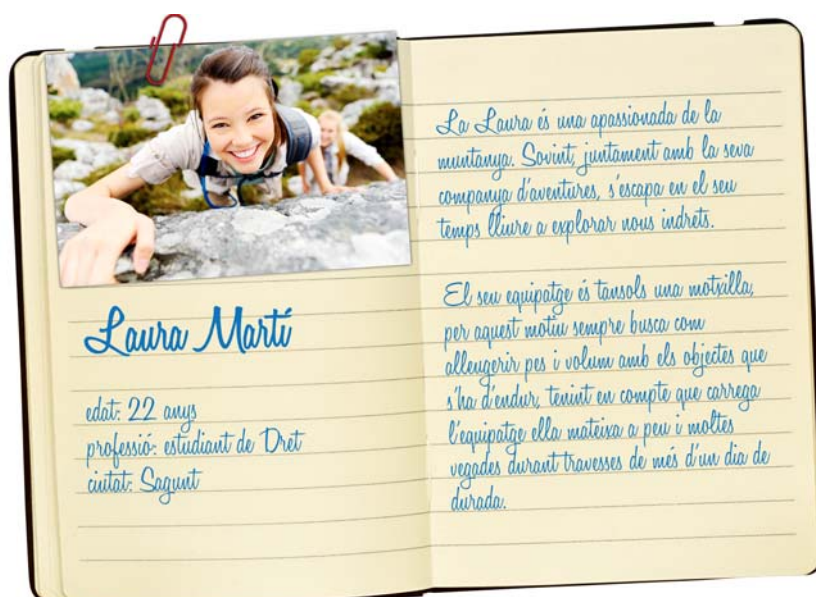 Laura Martí
edat: 22 anys
professió: estudiant de Dret
ciutat: Sagunt
La Laura és una apassionada de la
muntanya. Sovint, juntament amb la seva
companya d'aventures, s'escapa en el seu
temps lliure a explorar nous indrets.
El seu equipatge és tansols una motxilla,
per aquest motiu sempre busca com
alleugerir pes i volum amb els objectes que
s'ha d'endur, tenint en compte que carrega
l'equipatge ella mateixa a peu i moltes
vegades durant travesses de més d'un dia de
durada.